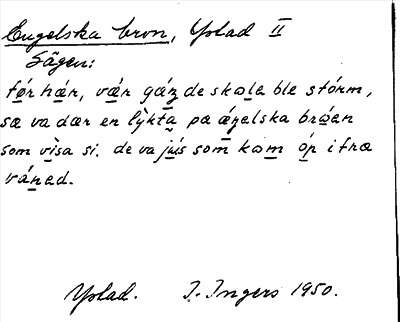 Engelska bron, Ystad II
Sägen:
før hær, vǽr gáꝫ de skɷla ble stórm,
sæ va dær en lỳkta pæ ǽꝫelska brɷen
som vìsa si. de va júːs som kɷm óp ifræ
váned.
Ystad. I. Ingers 1950.